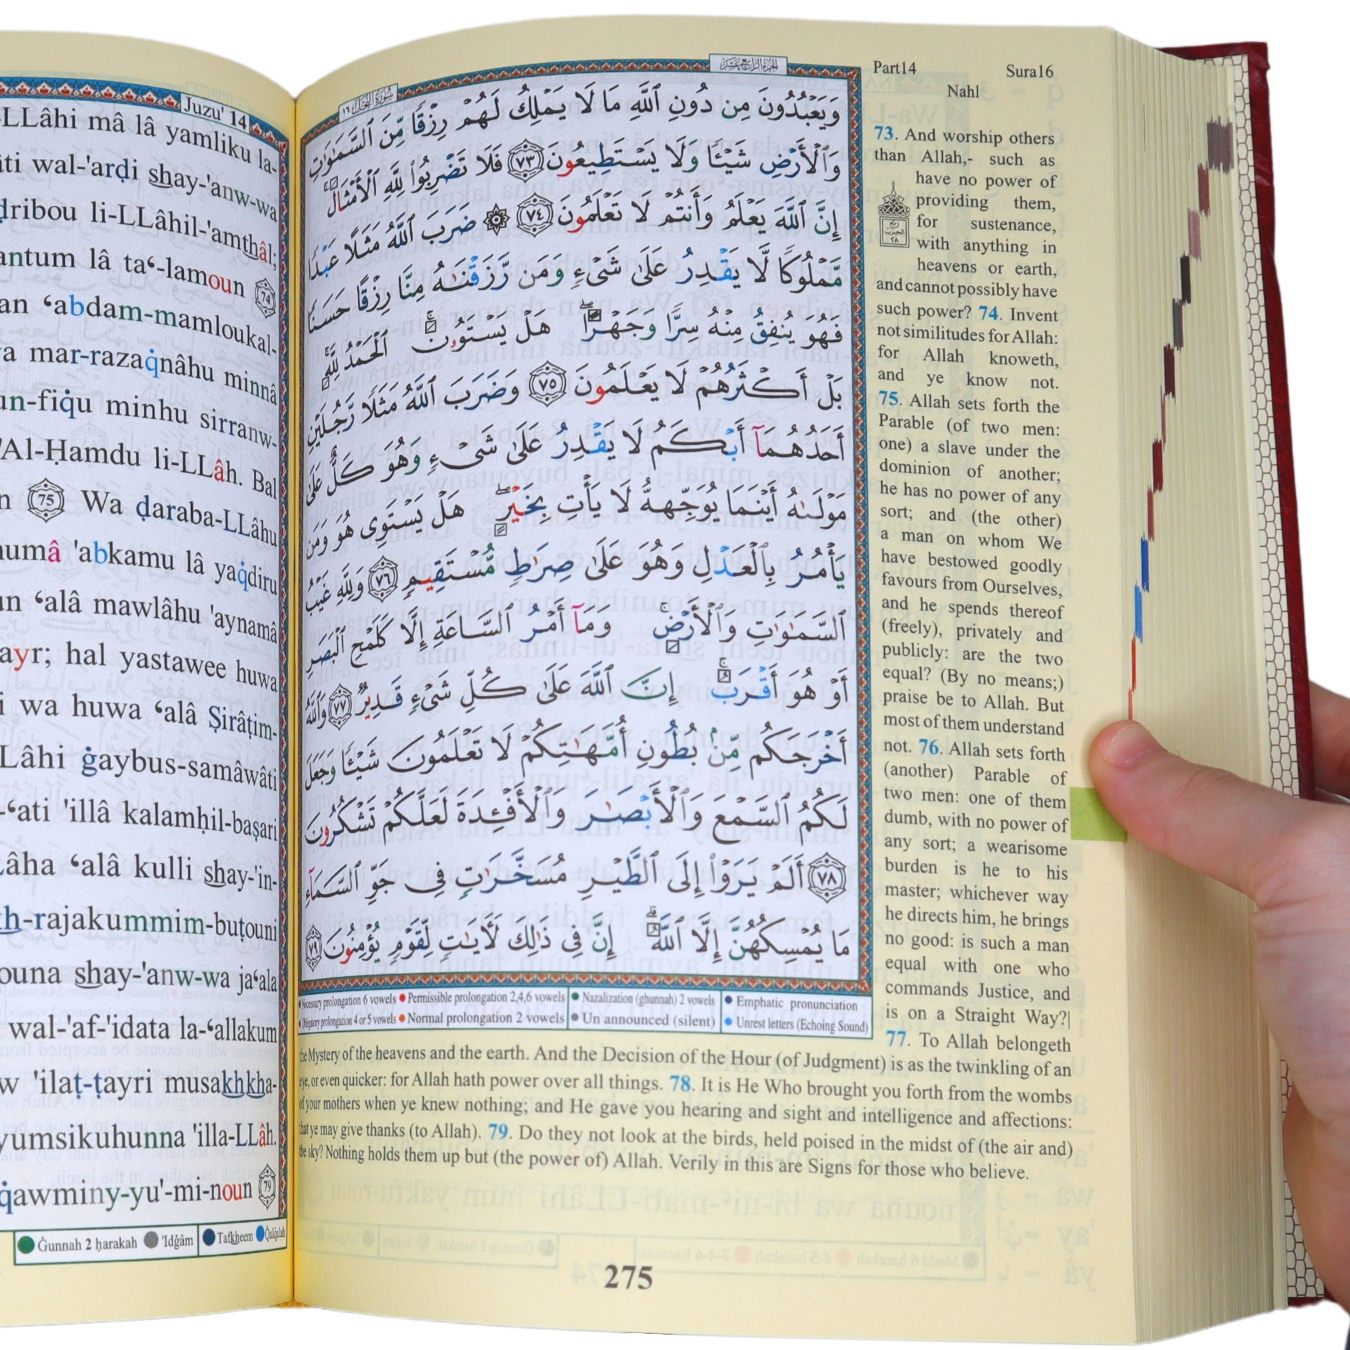 Juzu' 14
-LLâhi mâ lâ yamliku la-
âti wal-'arḍi shay-'anw-wa
ḍribou li-LLâhil-'amthâl;
antum lâ ta‘-lamoun 74
an ‘abdam-mamloukal-
a mar-razaq̇nâhu minnâ
un-fiq̇u minhu sirranw-
'Al-Ḥamdu li-LLâh. Bal
n 75 Wa ḍaraba-LLâhu
humâ 'abkamu lâ yaq̇diru
un ‘alâ mawlâhu 'aynamâ
ayr; hal yastawee huwa
i wa huwa ‘alâ Ṣirâṭim-
Lâhi ġaybus-samâwâti
-‘ati 'illâ kalamḥil-baṣari
Lâha ‘alâ kulli shay-'in-
kh-rajakummim-buṭouni
ouna shay-'anw-wa ja‘ala
wal-'af-'idata la-‘allakum
w 'ilaṭ-ṭayri musakhkha-
yumsikuhunna 'illa-LLâh.
q̇awminy-yu'-mi-noun 79
Ġunnah 2 ḥarakah 'Idġâm Tafkheem Q̇alq̇alah
سورة النحل ١٦
الجزء الرابع عشر
وَيَعْبُدُونَ مِن دُونِ ٱللَّهِ مَا لَا يَمْلِكُ لَهُمْ رِزْقًا مِّنَ ٱلسَّمَٰوَٰتِ
وَٱلْأَرْضِ شَيْـًٔا وَلَا يَسْتَطِيعُونَ ﴿٧٣﴾ فَلَا تَضْرِبُوا۟ لِلَّهِ ٱلْأَمْثَالَ ۚ
إِنَّ ٱللَّهَ يَعْلَمُ وَأَنتُمْ لَا تَعْلَمُونَ ﴿٧٤﴾ ۞ ضَرَبَ ٱللَّهُ مَثَلًا عَبْدًا
مَّمْلُوكًا لَّا يَقْدِرُ عَلَىٰ شَىْءٍ وَمَن رَّزَقْنَٰهُ مِنَّا رِزْقًا حَسَنًا
فَهُوَ يُنفِقُ مِنْهُ سِرًّا وَجَهْرًا ۖ هَلْ يَسْتَوُۥنَ ۚ ٱلْحَمْدُ لِلَّهِ ۚ
بَلْ أَكْثَرُهُمْ لَا يَعْلَمُونَ ﴿٧٥﴾ وَضَرَبَ ٱللَّهُ مَثَلًا رَّجُلَيْنِ
أَحَدُهُمَآ أَبْكَمُ لَا يَقْدِرُ عَلَىٰ شَىْءٍ وَهُوَ كَلٌّ عَلَىٰ
مَوْلَىٰهُ أَيْنَمَا يُوَجِّههُّ لَا يَأْتِ بِخَيْرٍ ۖ هَلْ يَسْتَوِى هُوَ وَمَن
يَأْمُرُ بِٱلْعَدْلِ وَهُوَ عَلَىٰ صِرَٰطٍ مُّسْتَقِيمٍ ﴿٧٦﴾ وَلِلَّهِ غَيْبُ
ٱلسَّمَٰوَٰتِ وَٱلْأَرْضِ ۚ وَمَآ أَمْرُ ٱلسَّاعَةِ إِلَّا كَلَمْحِ ٱلْبَصَرِ
أَوْ هُوَ أَقْرَبُ ۚ إِنَّ ٱللَّهَ عَلَىٰ كُلِّ شَىْءٍ قَدِيرٌ ﴿٧٧﴾ وَٱللَّهُ
أَخْرَجَكُم مِّنۢ بُطُونِ أُمَّهَٰتِكُمْ لَا تَعْلَمُونَ شَيْـًٔا وَجَعَلَ
لَكُمُ ٱلسَّمْعَ وَٱلْأَبْصَٰرَ وَٱلْأَفْـِٔدَةَ لَعَلَّكُمْ تَشْكُرُونَ
﴿٧٨﴾ أَلَمْ يَرَوْا۟ إِلَى ٱلطَّيْرِ مُسَخَّرَٰتٍ فِى جَوِّ ٱلسَّمَآءِ
مَا يُمْسِكُهُنَّ إِلَّا ٱللَّهُ ۗ إِنَّ فِى ذَٰلِكَ لَءَايَٰتٍ لِّقَوْمٍ يُؤْمِنُونَ ﴿٧٩﴾
Necessary prolongation 6 vowels Permissible prolongation 2,4,6 vowels Nazalization (ghunnah) 2 vowels Emphatic pronunciation
Obligatory prolongation 4 or 5 vowels Normal prolongation 2 vowels Un announced (silent) Unrest letters (Echoing Sound)
Part14 Sura16
Nahl
73. And worship others
than Allah,- such as
have no power of
providing them,
for sustenance,
with anything in
heavens or earth,
and cannot possibly have
such power? 74. Invent
not similitudes for Allah:
for Allah knoweth,
and ye know not.
75. Allah sets forth the
Parable (of two men:
one) a slave under the
dominion of another;
he has no power of any
sort; and (the other)
a man on whom We
have bestowed goodly
favours from Ourselves,
and he spends thereof
(freely), privately and
publicly: are the two
equal? (By no means;)
praise be to Allah. But
most of them understand
not. 76. Allah sets forth
(another) Parable of
two men: one of them
dumb, with no power of
any sort; a wearisome
burden is he to his
master; whichever way
he directs him, he brings
no good: is such a man
equal with one who
commands Justice, and
is on a Straight Way?|
77. To Allah belongeth
the Mystery of the heavens and the earth. And the Decision of the Hour (of Judgment) is as the twinkling of an
eye, or even quicker: for Allah hath power over all things. 78. It is He Who brought you forth from the wombs
of your mothers when ye knew nothing; and He gave you hearing and sight and intelligence and affections:
that ye may give thanks (to Allah). 79. Do they not look at the birds, held poised in the midst of (the air and)
the sky? Nothing holds them up but (the power of) Allah. Verily in this are Signs for those who believe.
275